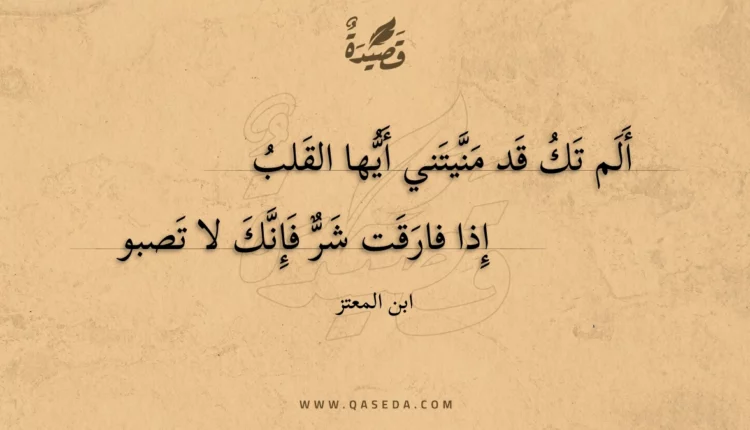 قَصِيدَةٌ
أَلَم تَكُ قَد مَنَّيتَني أَيُّها القَلبُ
إِذا فارَقَت شَرٌّ فَإِنَّكَ لا تَصبو
ابن المعتز
WWW.QASEDA.COM